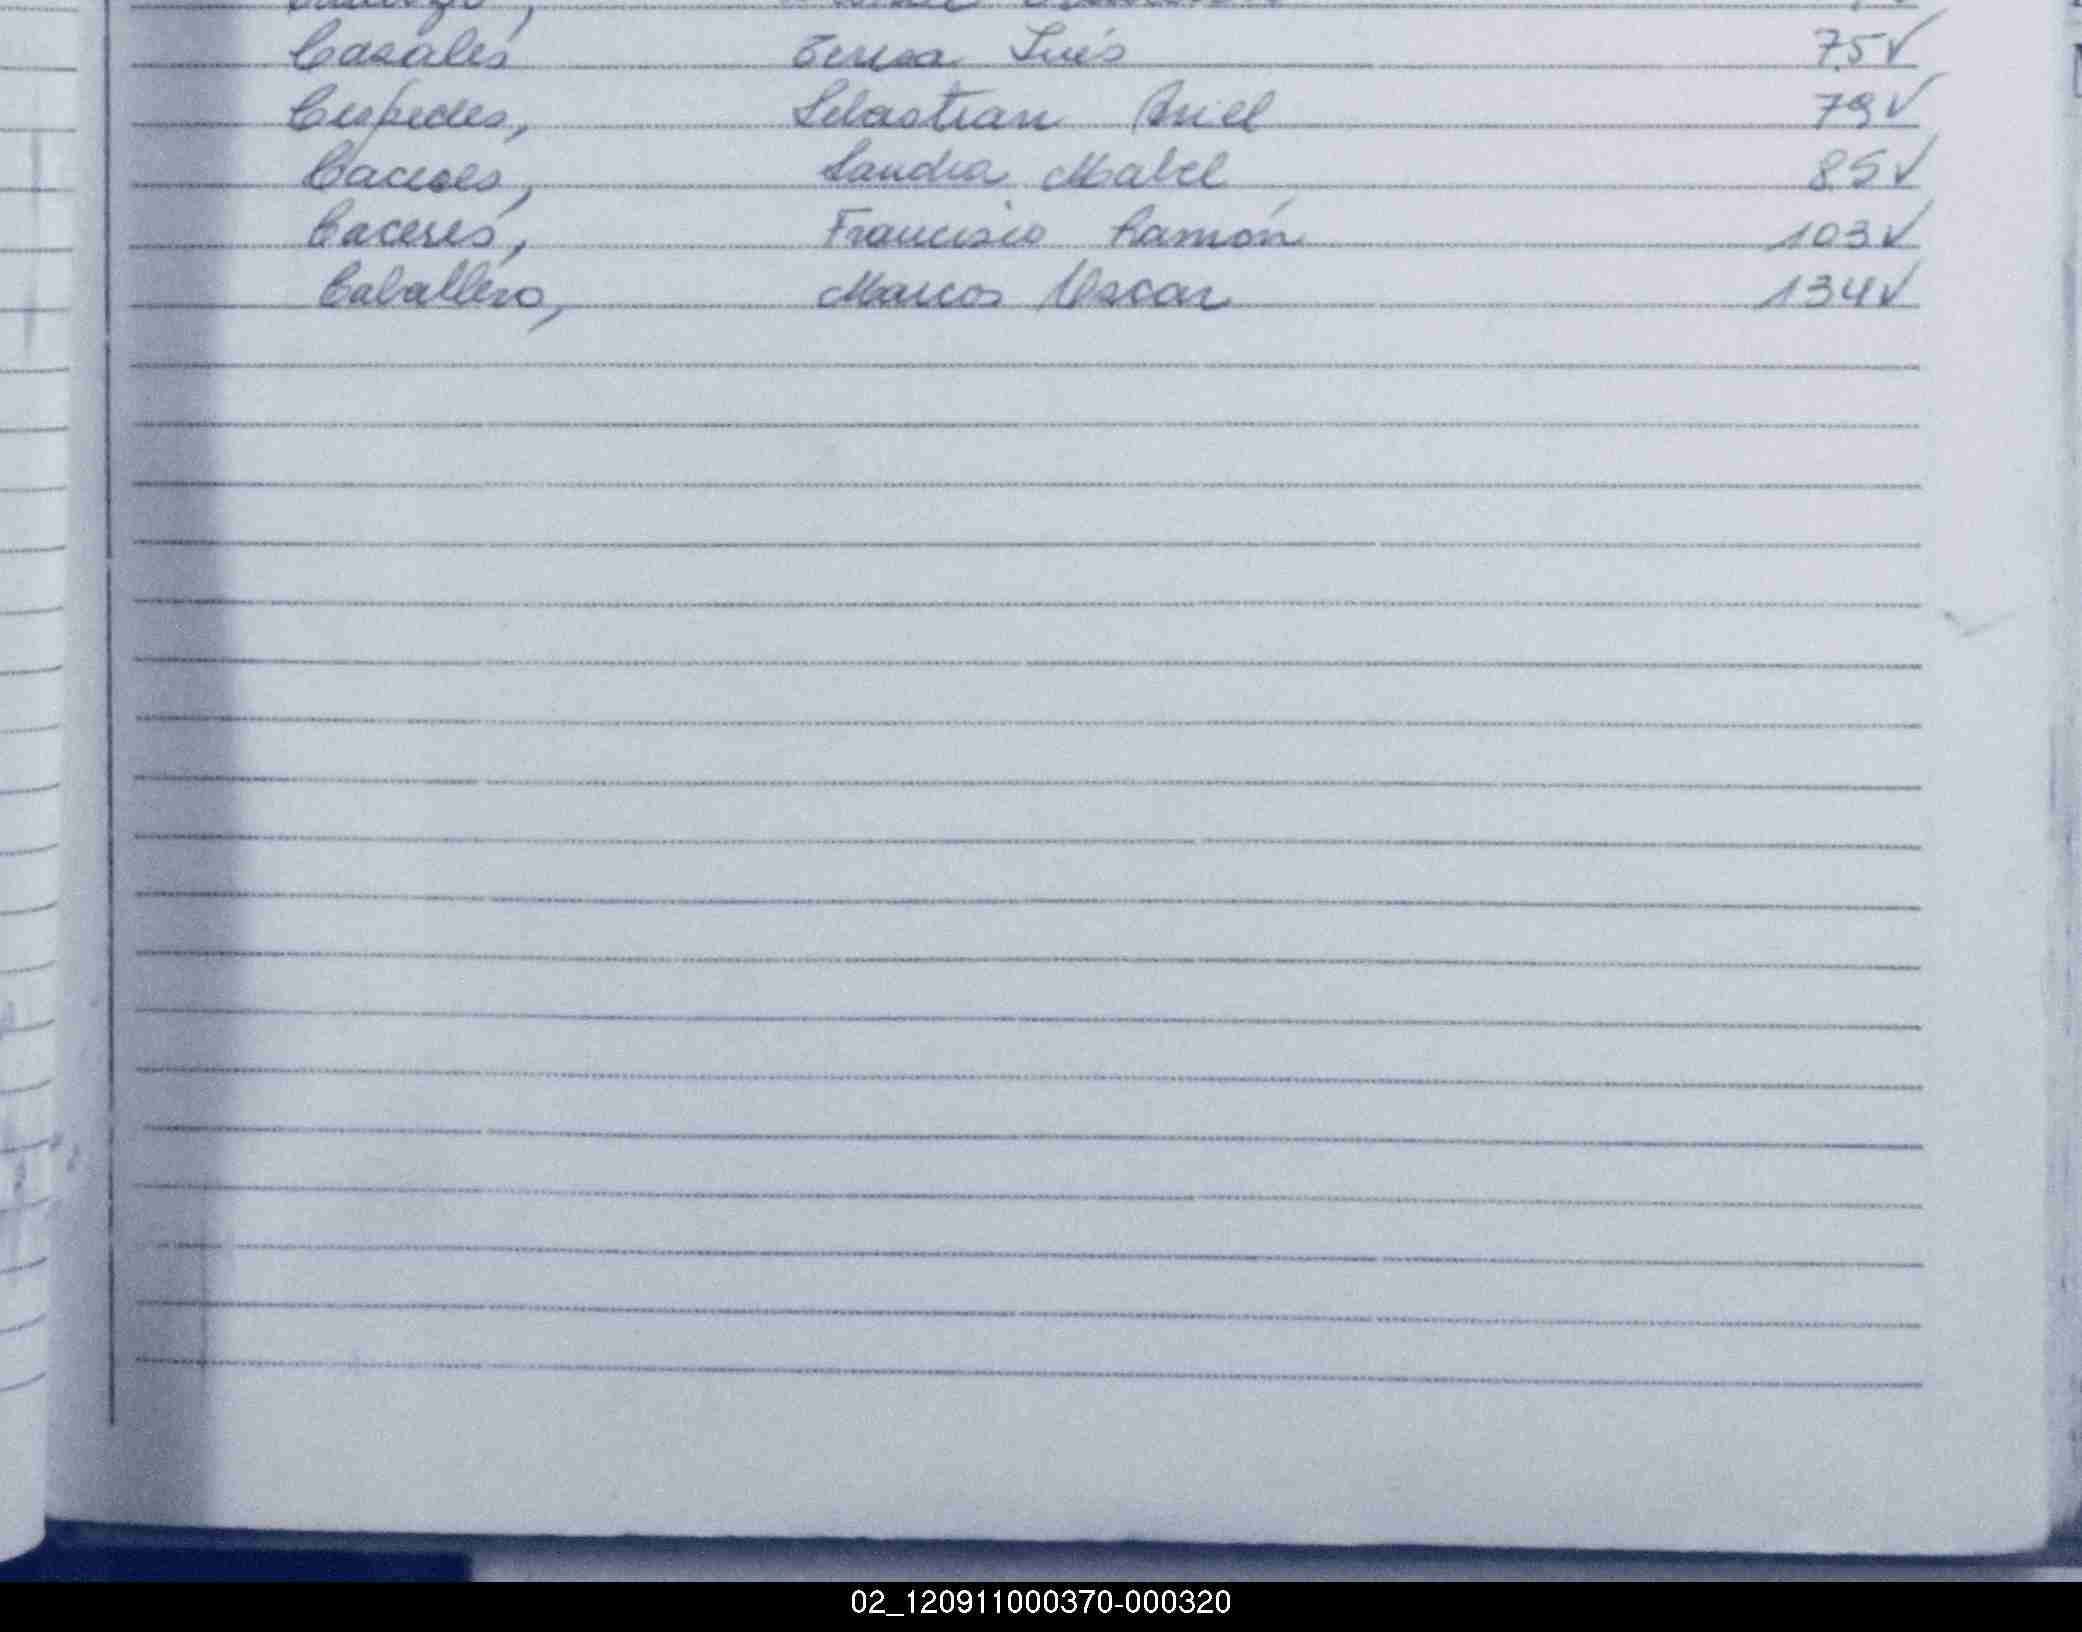 Casales Teresa Inés 75✓
Cespedes, Sebastian Ariel 79✓
Caceres, Sandra Mabel 85✓
Caceres, Francisco Ramón 103✓
Caballero, Marcos Oscar 134✓
02_120911000370-000320